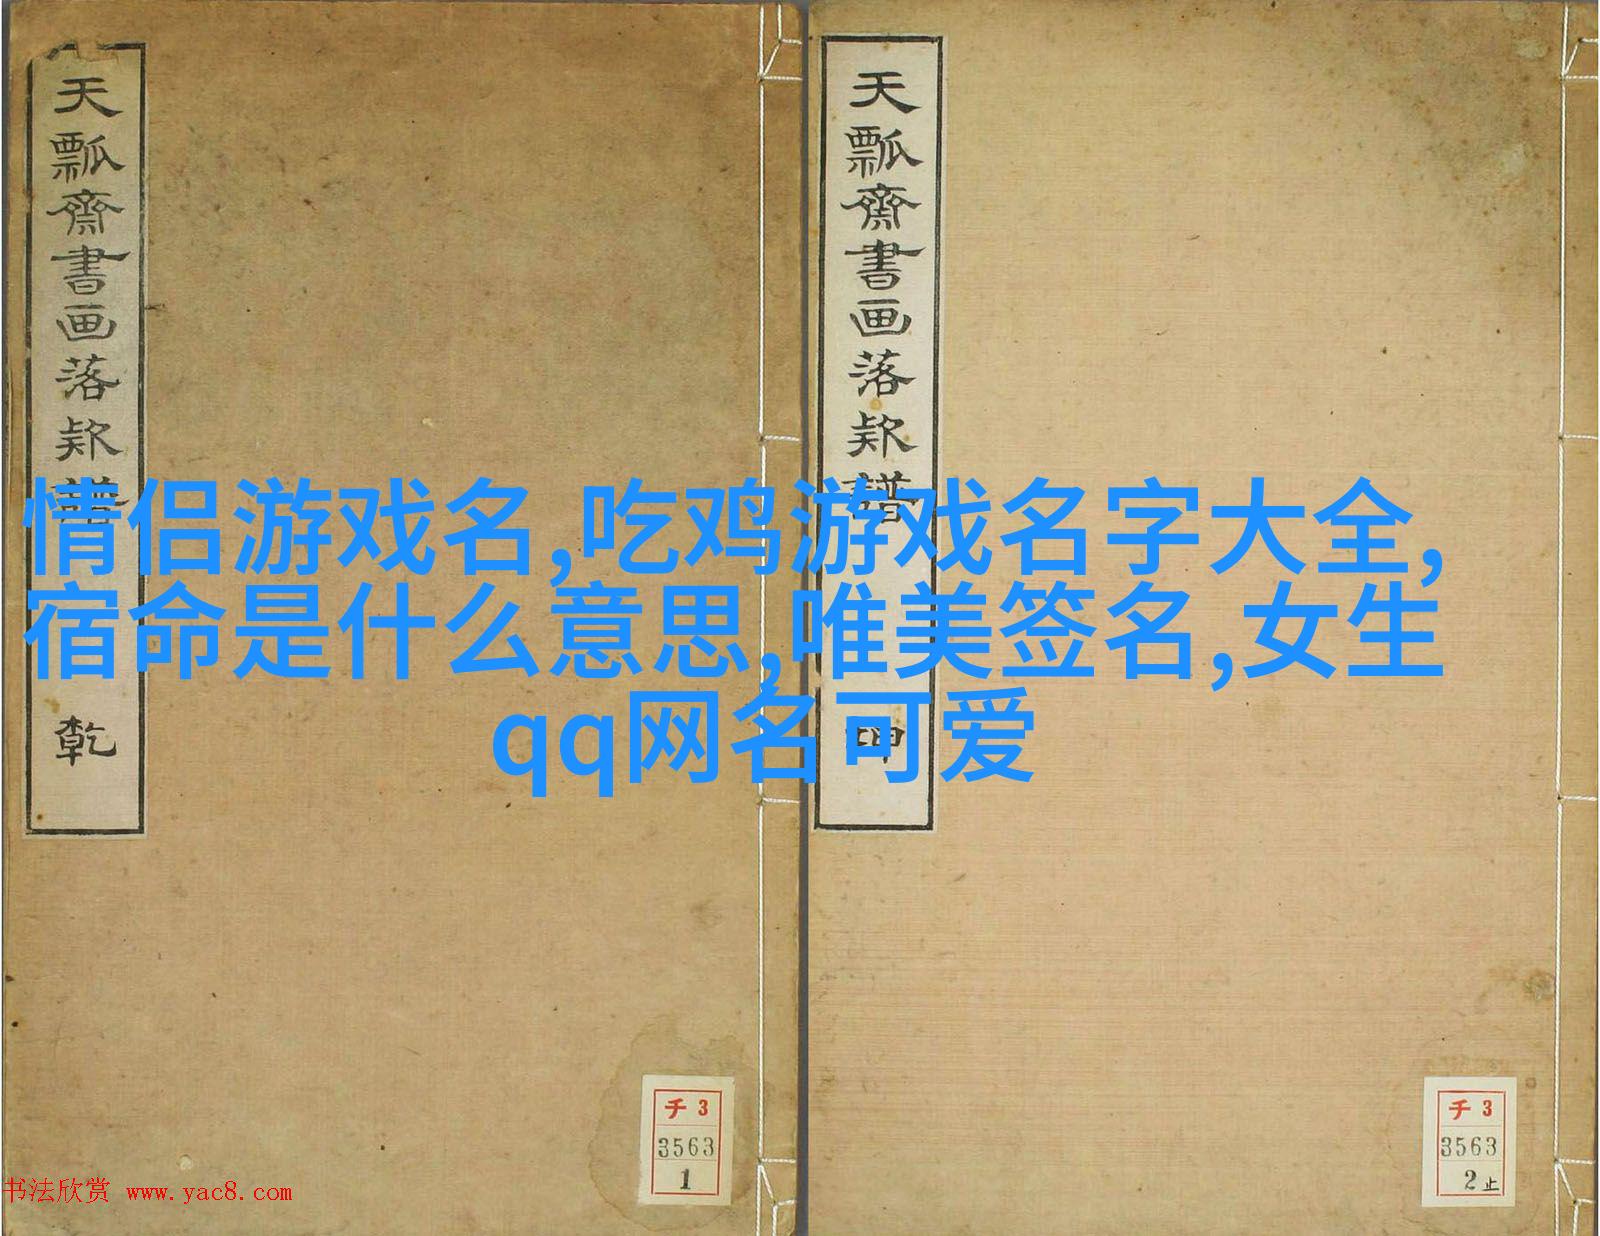 天瓢齋書画落欵譜
乾
天瓢齋書画落欵譜
坤
情侣游戏名,吃鸡游戏名字大全,
宿命是什么意思,唯美签名,女生
qq网名可爱
チ 3
3563
1
チ 3
3563
2止
书法欣赏 www.yac8.com